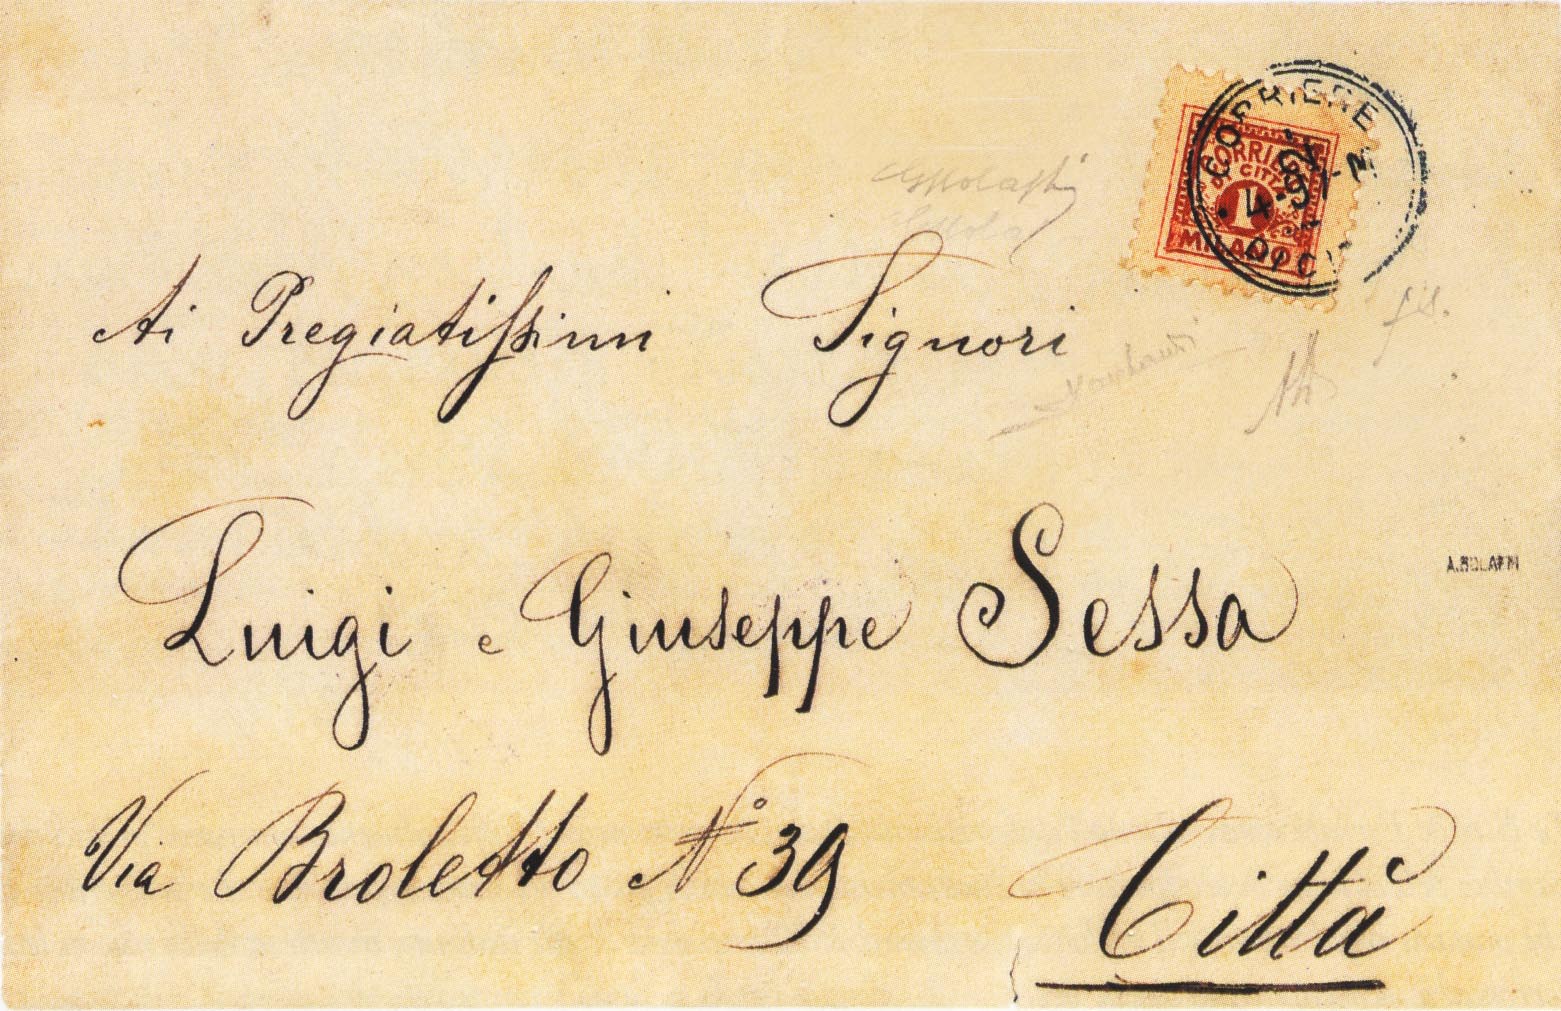 CORRIERE
CORRIERE
DI CITTÀ
1
MILANO
Ai Pregiatissimi Signori
Luigi e Giuseppe Sessa
A.BOLAFFI
Via Broletto N° 39
Città